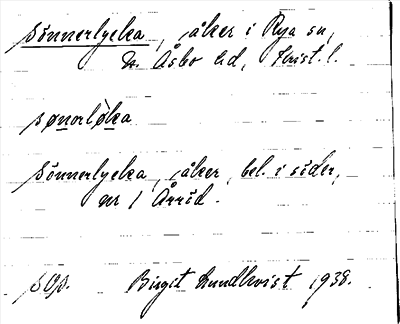 Sönnerlycka, åker i Rya sn,
N. Åsbo hd, Krist. l.
sønorlỳka
Sönnerlycka, åker, bel. i söder,
nr 1 Årröd.
Birgit Lundkvist 1938.